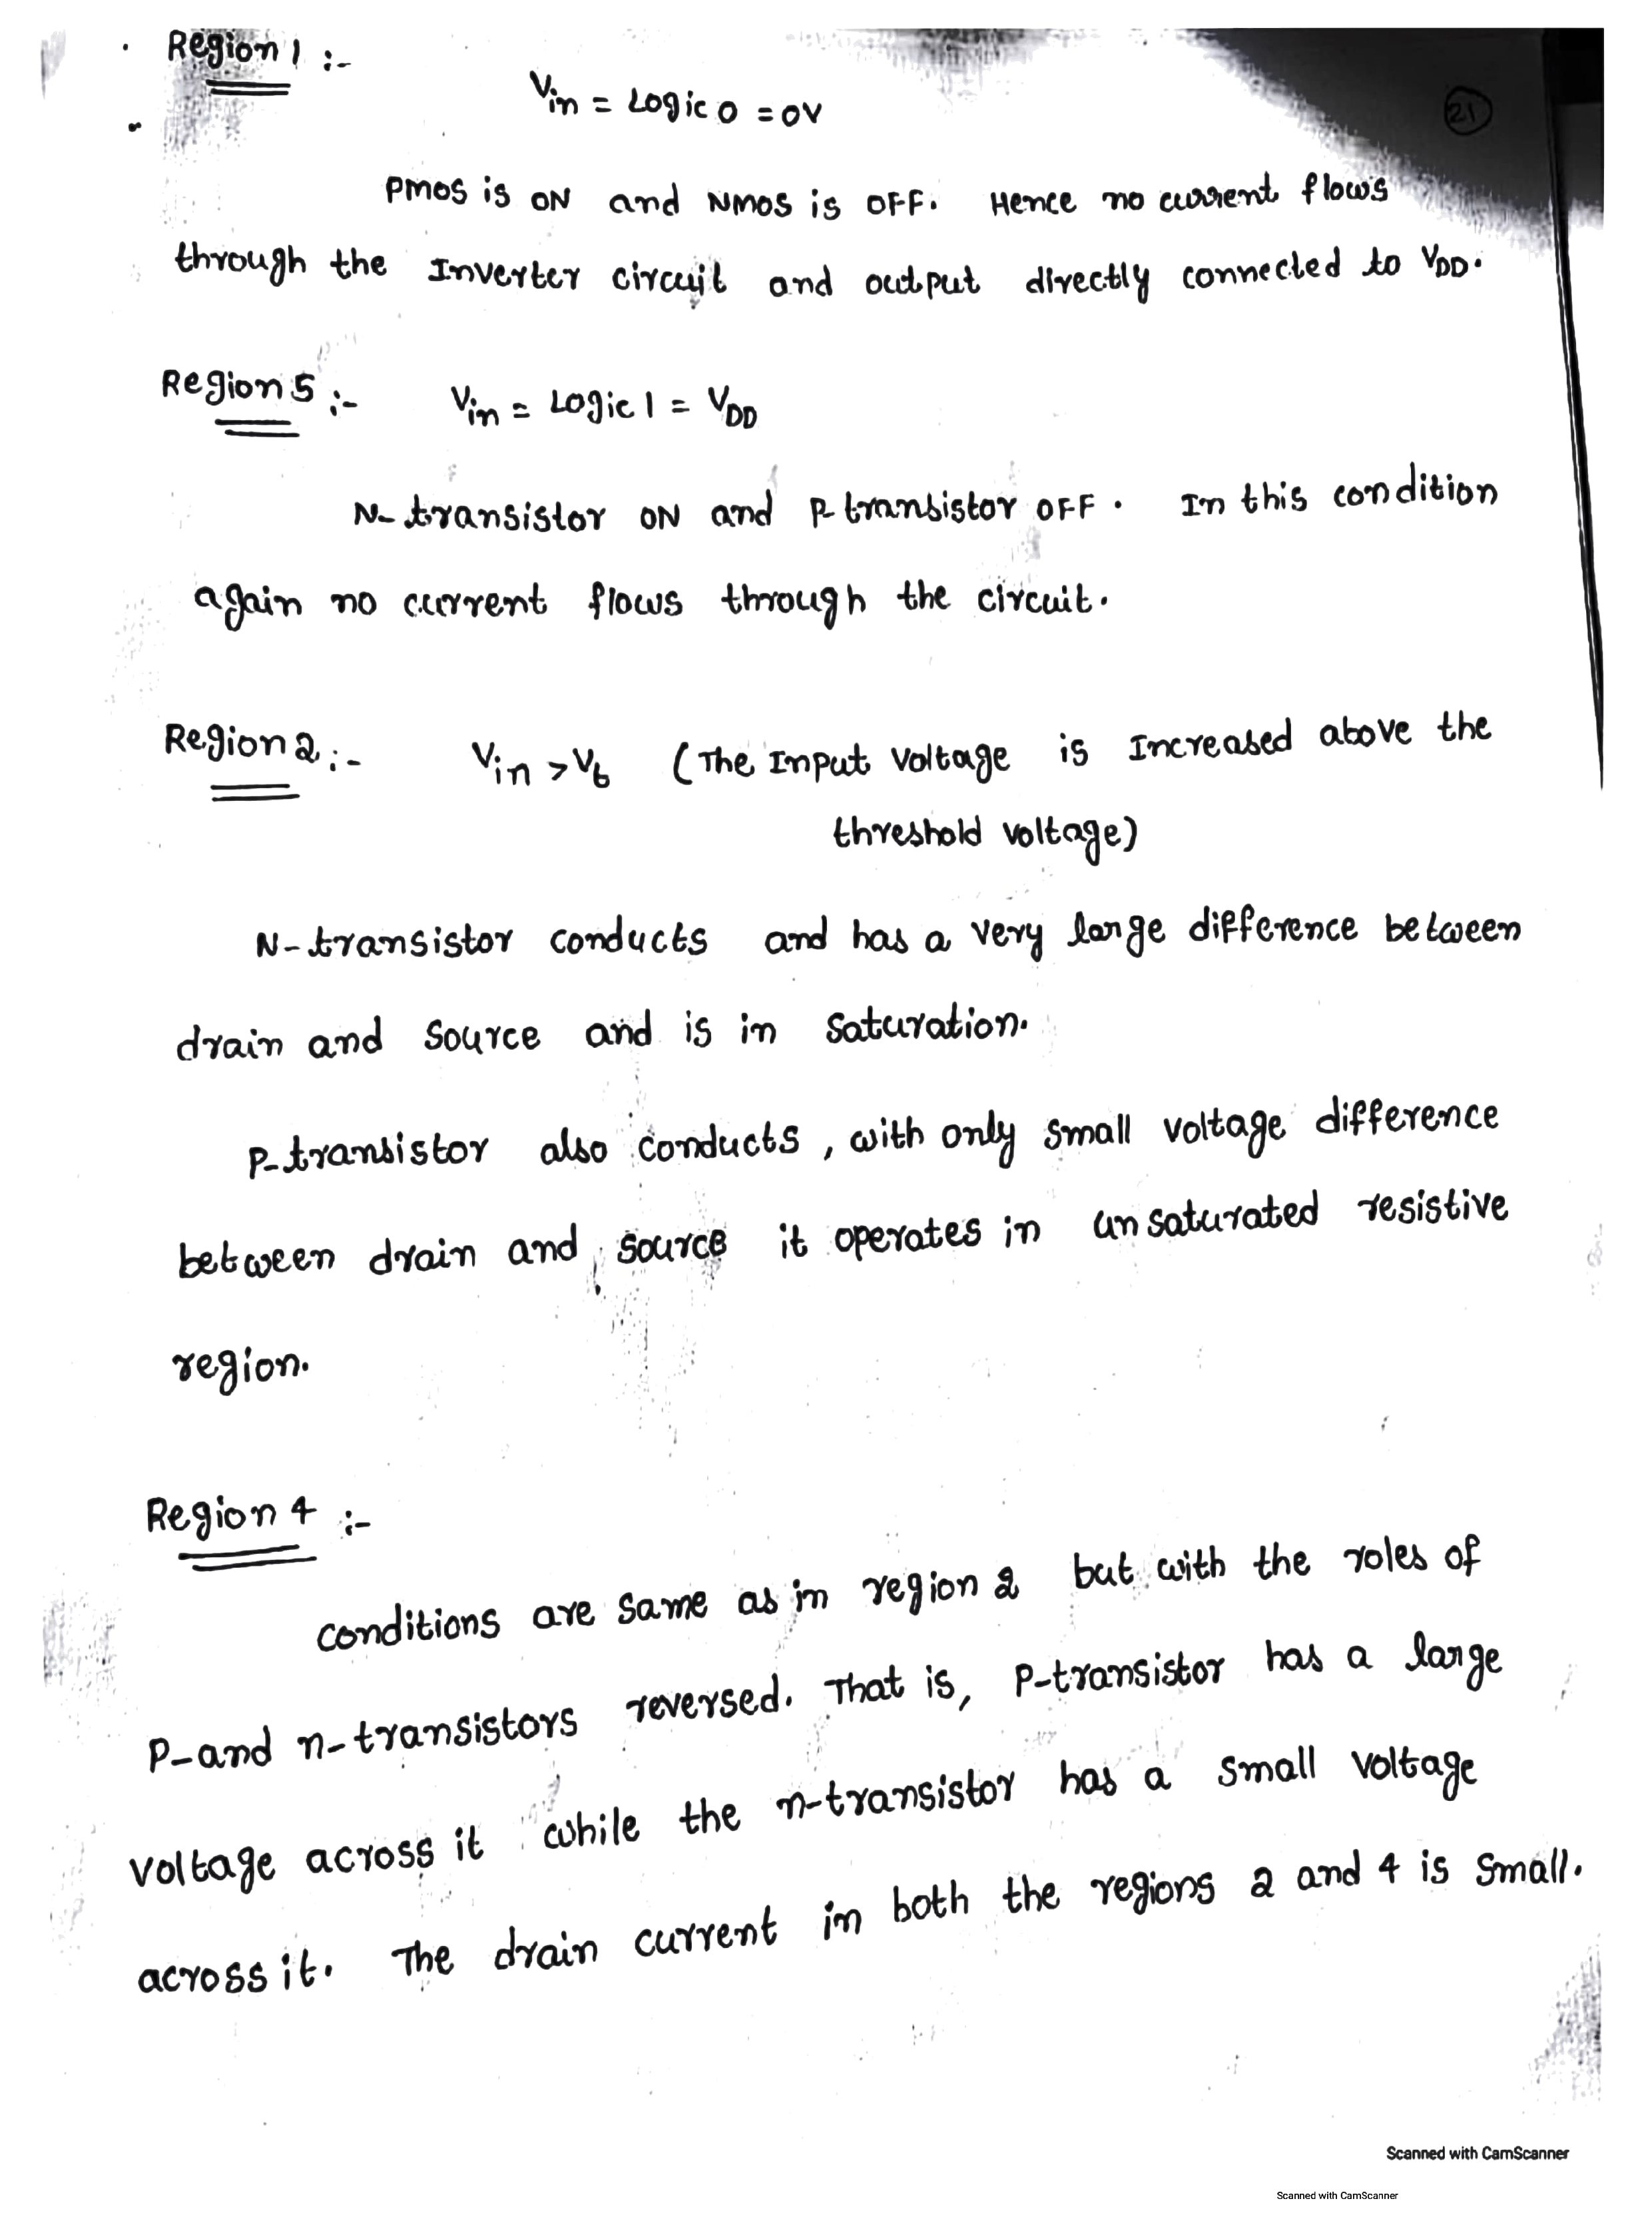 Region 1 :-
Vin = Logic 0 = 0V
21
PMOS is ON and NMOS is OFF. Hence no current flows
through the Inverter circuit and output directly connected to VDD.
Region 5 :- Vin = Logic 1 = VDD
N-transistor ON and P-transistor OFF. In this condition
again no current flows through the circuit.
Region 2 :- Vin > Vt (The Input Voltage is Increased above the
threshold voltage)
N-transistor conducts and has a very large difference between
drain and source and is in saturation.
P-transistor also conducts, with only small voltage difference
between drain and source it operates in unsaturated resistive
region.
Region 4 :-
conditions are same as in region 2 but with the roles of
P-and n-transistors reversed. That is, P-transistor has a large
voltage across it while the n-transistor has a small voltage
across it. The drain current in both the regions 2 and 4 is small.
Scanned with CamScanner
Scanned with CamScanner